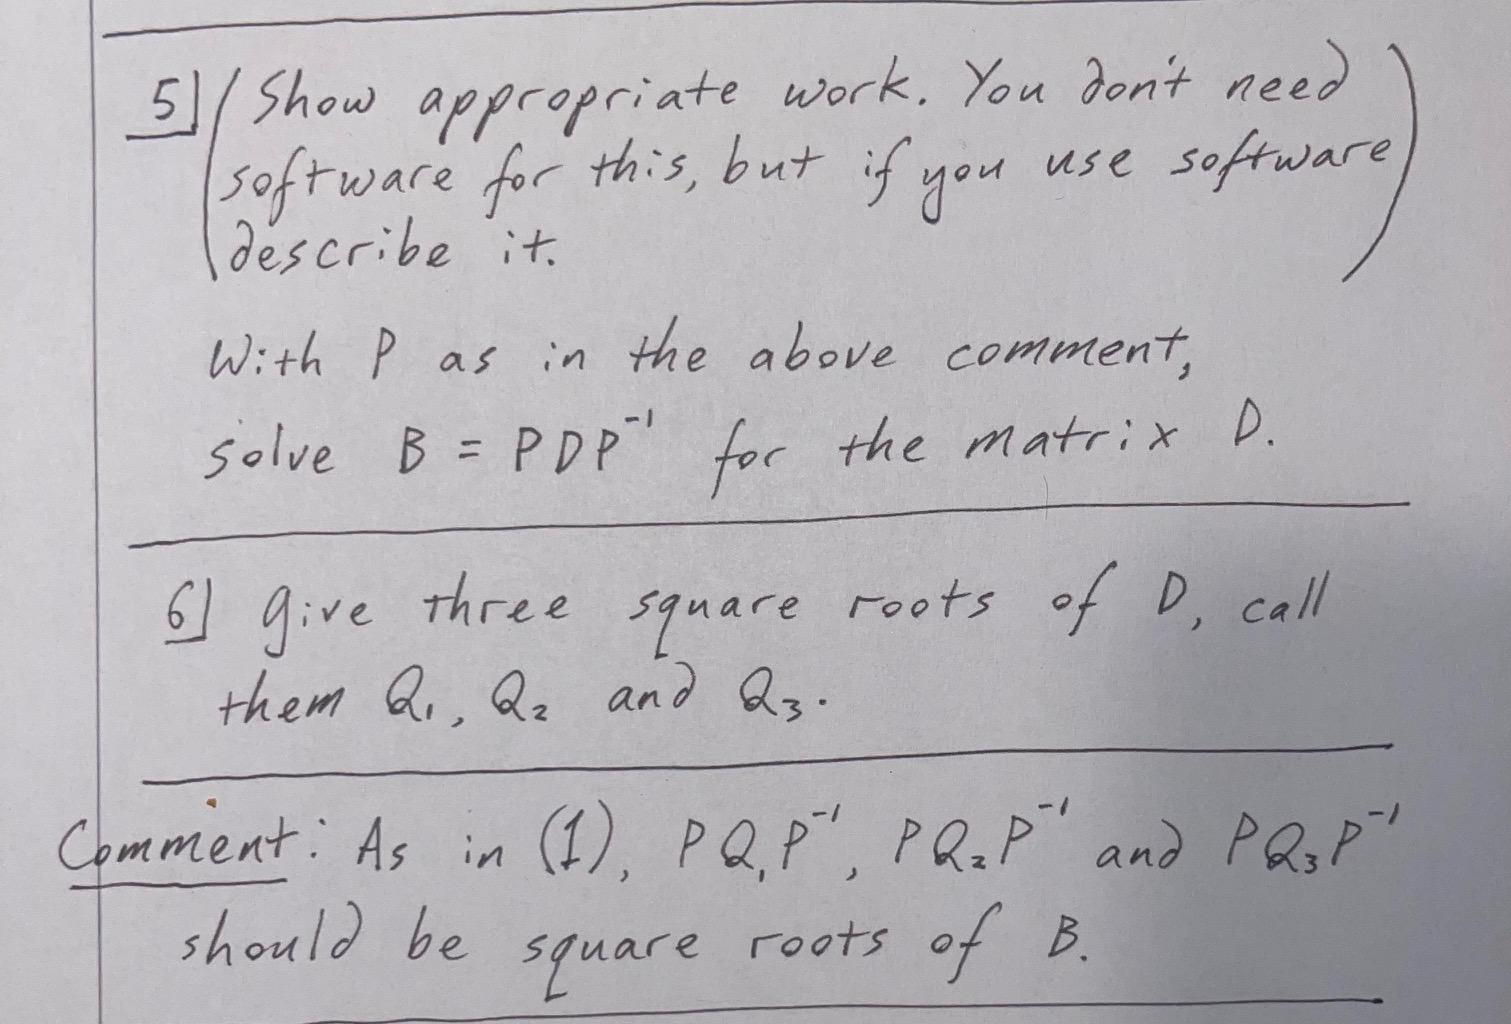 5] (Show appropriate work. You don't need
software for this, but if you use software
describe it.)
With P as in the above comment,
solve B = PDP⁻¹ for the matrix D.
6] give three square roots of D, call
them Q₁, Q₂ and Q₃.
Comment: As in (1), PQ₁P⁻¹, PQ₂P⁻¹ and PQ₃P⁻¹
should be square roots of B.